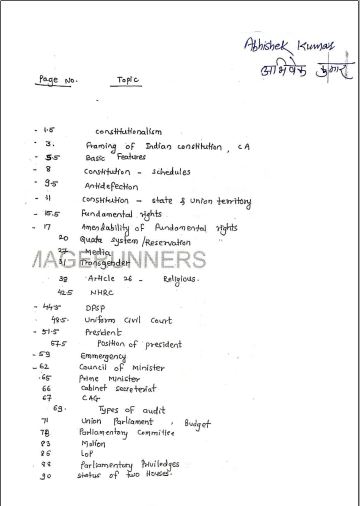 Abhishek Kumar
अभिषेक कुमार
Page No. Topic
- 1.5 Constitutionalism
- 3. Framing of Indian constitution, CA
- 5.5 Basic Features
- 8 Constitution - schedules
- 9.5 Antidefection
- 11 Constitution - state & union territory
- 15.5 Fundamental rights
- 17 Amendability of Fundamental rights
20 Quota system / Reservation
27 Media
31 Transgender
MAGERUNNERS
38 Article 26 - Religious.
42.5 NHRC
- 44.5 DPSP
48.5. Uniform Civil Court
- 51.5 President
57.5 Position of president
- 59 Emmergency
- 62 Council of Minister
.65 Prime Minister
66 Cabinet secreteriat
67 CAG
69. Types of audit
71 Union Parliament, Budget
78 Parliamentary Committee
83 Motion
86 LoP
88 Parliamentory Priviledges
90 status of two Houses.